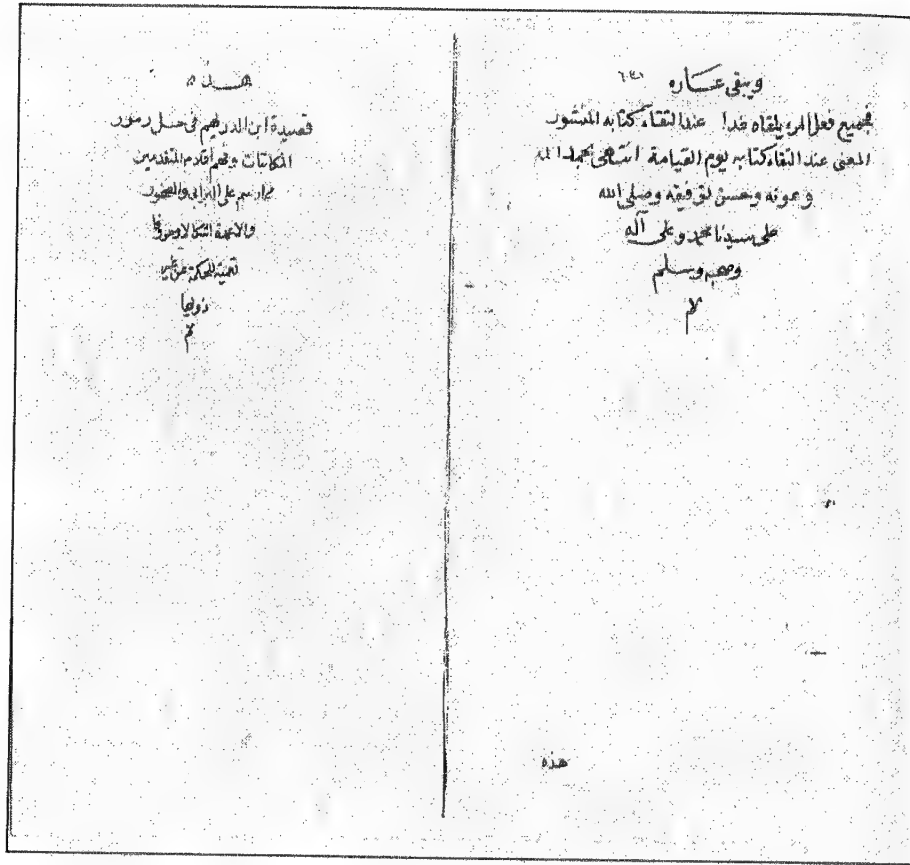 ويبقى عاره
فجميع فعل المرء يلقاه غدا عند التقاء كتابه المنشور
المعنى عند التقاء كتابه ليوم القيامة انتهى بحمد الله
وعونه وحسن توفيقه وصلى الله
على سيدنا محمد وعلى آله
وصحبه وسلم
م
هذه
هذه
قصيدة ابن الدريهم في حل رموز
المكاتبات وفهم أقلام المتقدمين
على البرابي والصخور
والاعمدة
للحكمة عن غير
ذويها
م